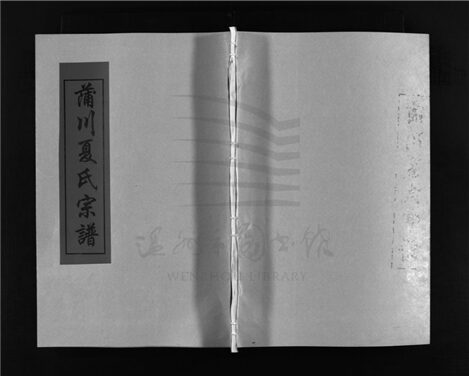 蒲川夏氏宗譜
温州市圖書館
WENZHOU LIBRARY